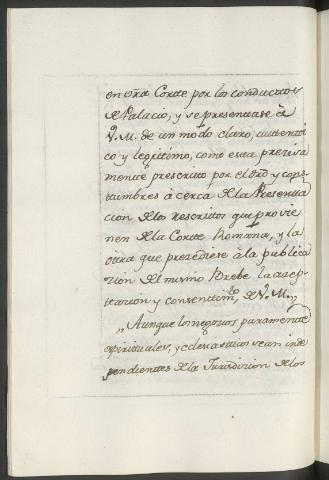 en vr̃a Corte por los conductos
de Palacio, y se presentase à
V. M. de un modo claro, autenti
co y legitimo, como esta precisa
mente prescrito por el dr̃o y cons
tumbres à cerca de la Presenta
cion de los rescritos que provie
nen de la Corte Romana, y la
otra que precediese à la publica
cion del mismo Brebe la acep
tacion y consentim.to de V. M.,,
,, Aunque los negocios puramente
espirituales, y eclesiasticos sean inde
pendientes de la Jurisdicion de los